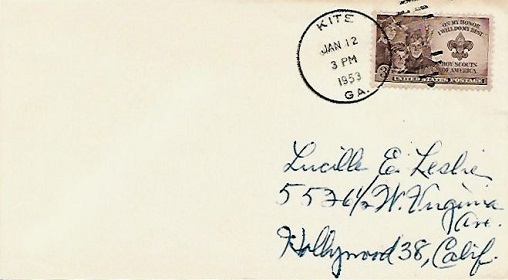 KITE
JAN 12
3 PM
1953
GA.
ON MY HONOR
I WILL DO MY BEST
BOY SCOUTS
OF AMERICA
3¢
UNITED STATES POSTAGE
Lucille E. Leslie
5526½ W. Virginia
Ave.
Hollywood 38, Calif.